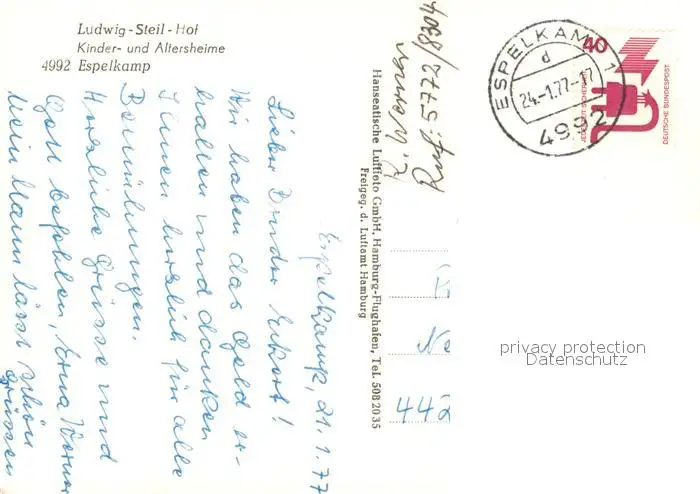 Ludwig-Steil-Hof
Kinder- und Altersheime
4992 Espelkamp
Espelkamp, 21.1.77
Lieber Bruder
Wir haben das Geld er-
halten und danken
Ihnen herzlich für alle
Bemühungen.
Herzliche Grüsse und
Gott befohlen, Erna Werner
Mein Mann lässt schön
grüssen
Hanseatische Luftfoto GmbH, Hamburg-Flughafen, Tel. 5082035
Freigeg. d. Luftamt Hamburg
5775/8804
ESPELKAMP 1
d
24.-1.77-17
4992
40
JEDERZEIT SICHERHEIT
DEUTSCHE BUNDESPOST
Ne
442
privacy protection
Datenschutz